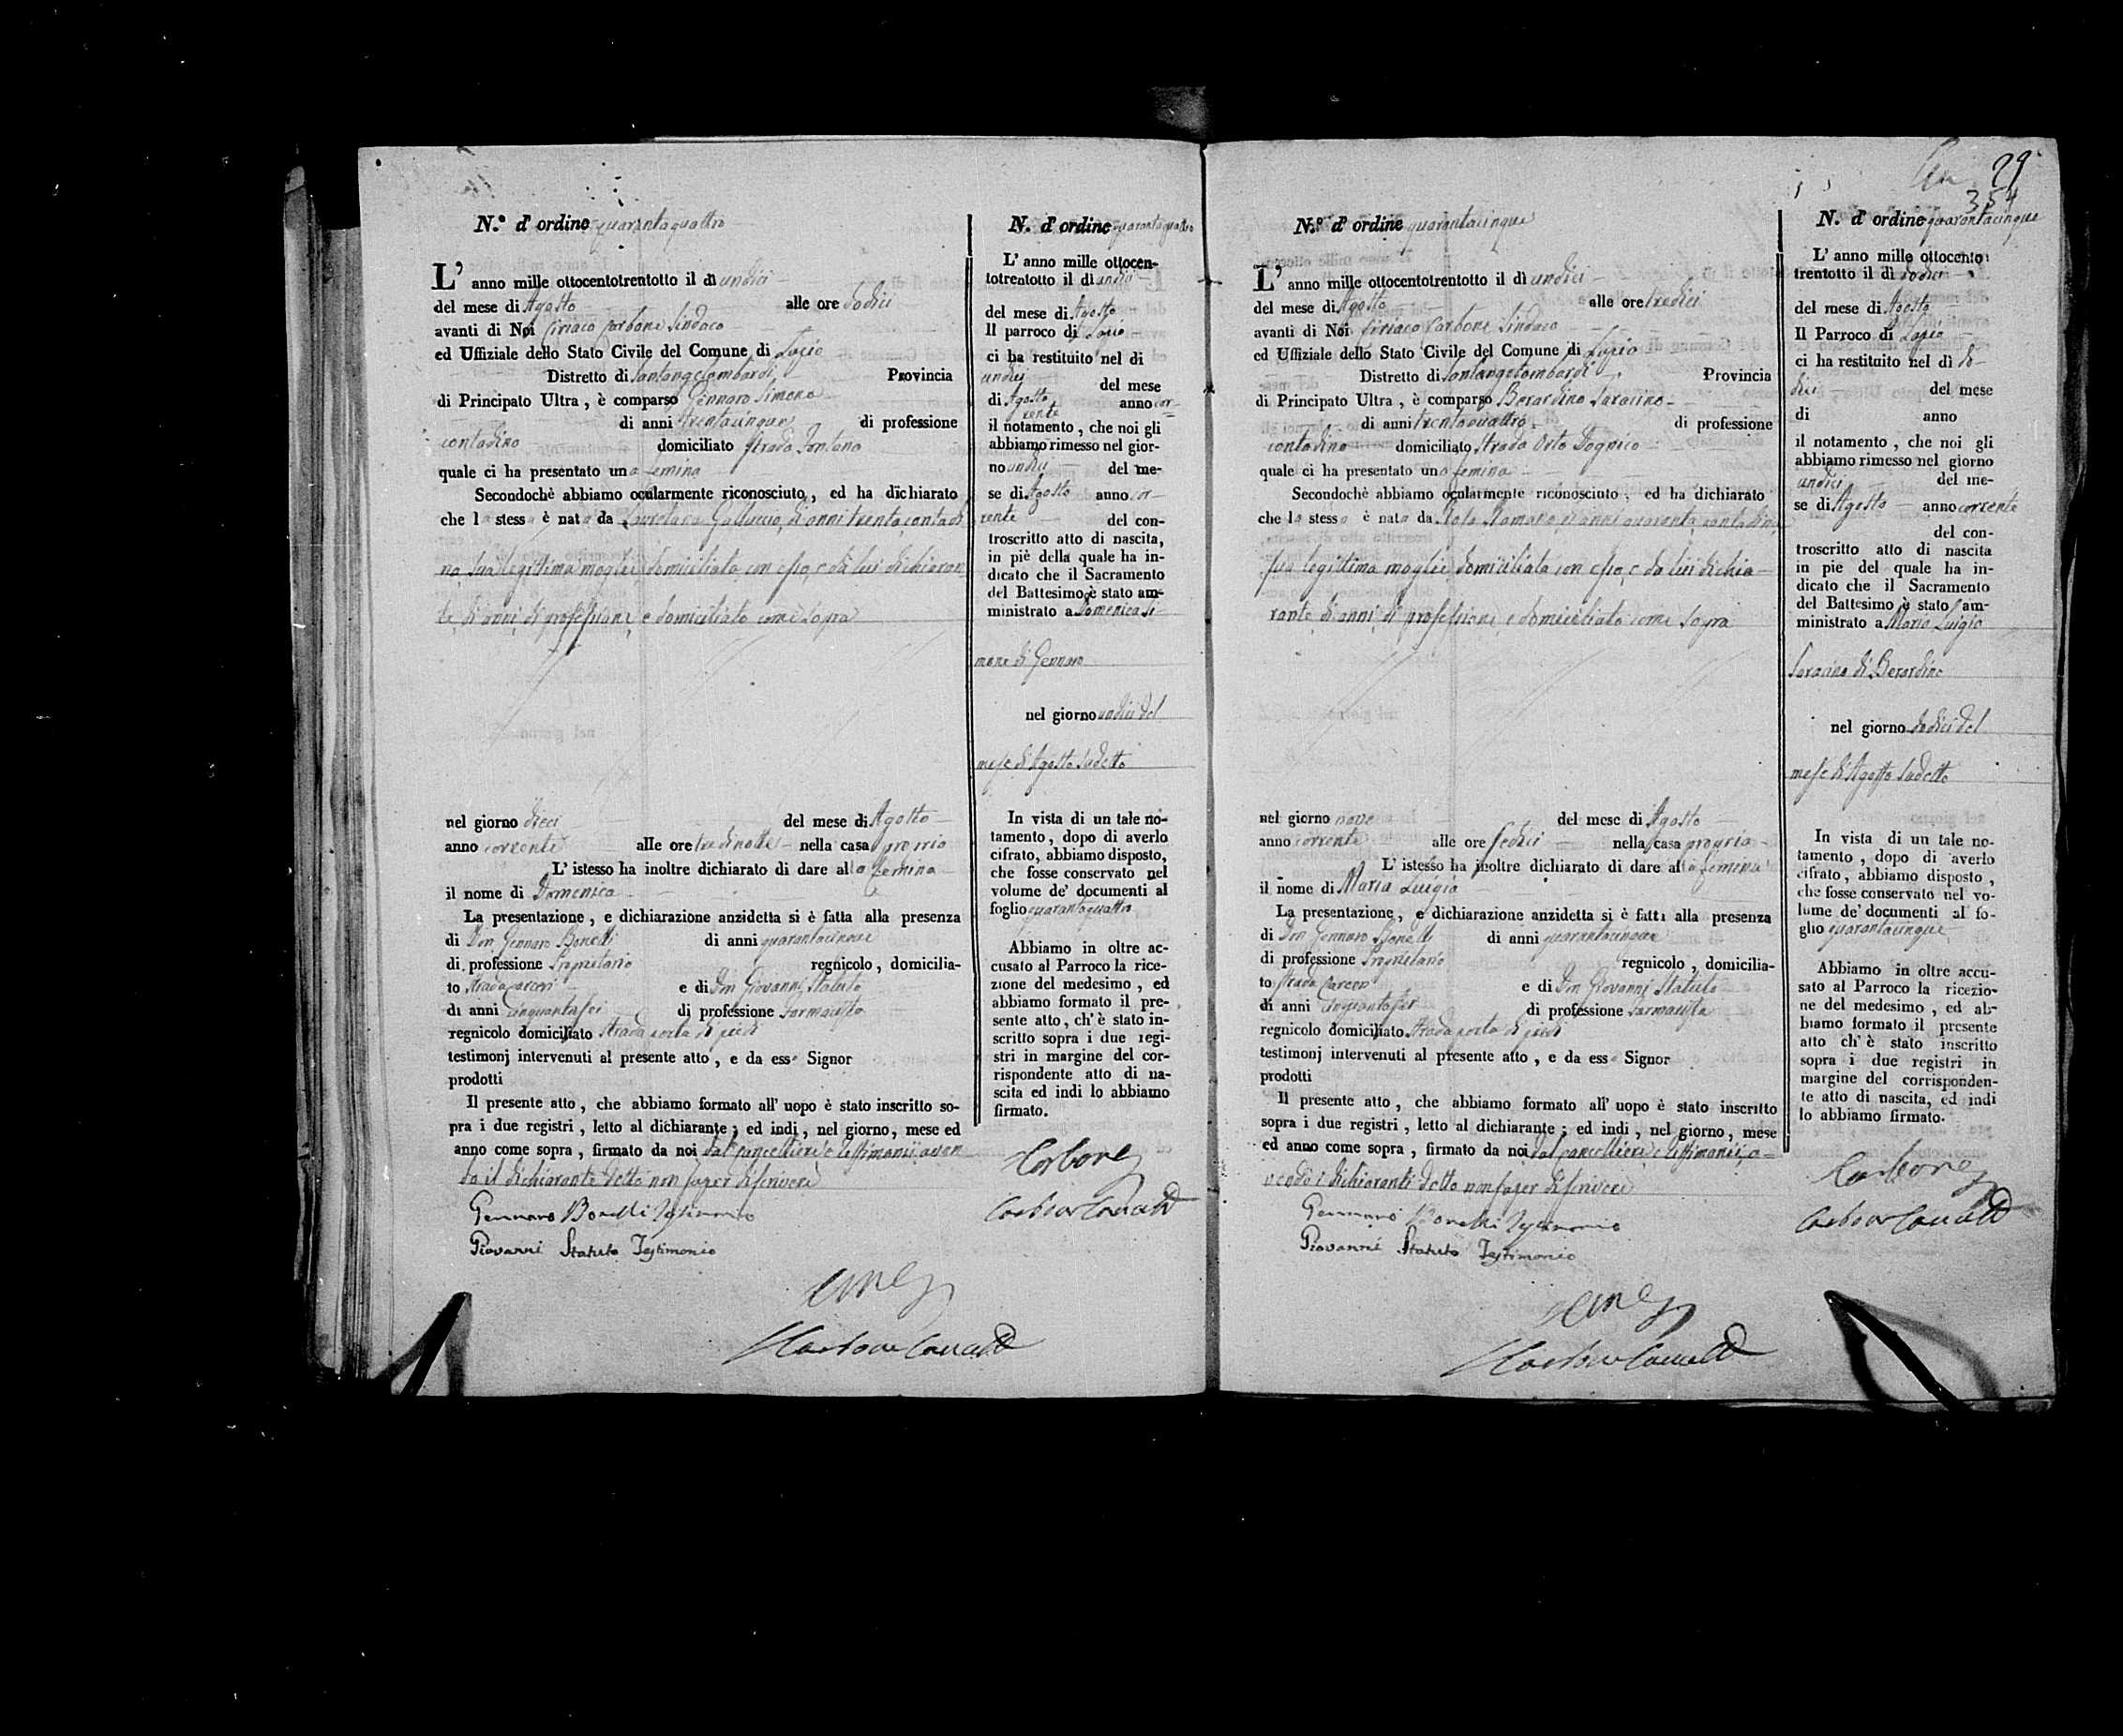 N.º d' ordine quarantaquattro
L' anno mille ottocentotrentotto il dì undici
del mese di Agosto alle ore dodici
avanti di Noi Ciriaco Carbone Sindaco
ed Uffiziale dello Stato Civile del Comune di Lapio
Distretto di Santangelombardi Provincia
di Principato Ultra , è comparso Gennaro Simone
di anni trentacinque di professione
contadino domiciliato strada Fontana
quale ci ha presentato una femina
Secondochè abbiamo ocularmente riconosciuto , ed ha dichiarato
che la stessa è nata da Galluccio, di anni trenta contadi
na, sua legittima moglie, domiciliata con esso, e da lui dichiaran
te, di anni, di professione, e domiciliato come sopra
nel giorno dieci del mese di Agosto
anno corrente alle ore tre di notte nella casa propria
L' istesso ha inoltre dichiarato di dare alla femina
il nome di Domenica
La presentazione , e dichiarazione anzidetta si è fatta alla presenza
di Don Gennaro Bonelli di anni quarantacinque
di professione Proprietario regnicolo , domicilia-
to strada carceri e di Don Giovanni Statuto
di anni cinquantasei di professione Farmacista
regnicolo domiciliato strada porta di piedi
testimonj intervenuti al presente atto , e da esso Signor
prodotti
Il presente atto , che abbiamo formato all' uopo è stato inscritto so-
pra i due registri , letto al dichiarante ; ed indi , nel giorno , mese ed
anno come sopra , firmato da noi dal cancelliere e testimonii, aven
do il dichiarante detto non saper discrivere
Gennaro Bonelli Testimonio
Giovanni Statuto Testimonio
N. d' ordine quarantaquattro
L' anno mille ottocen-
totrentotto il dì undici
del mese di Agosto
Il parroco di Lapio
ci ha restituito nel di
undici del mese
di Agosto anno cor-
rente
il notamento , che noi gli
abbiamo rimesso nel gior-
no undici del me-
se di Agosto anno cor-
rente del con-
troscritto atto di nascita,
in piè della quale ha in-
dicato che il Sacramento
del Battesimo è stato am-
ministrato a Domenica Si-
mone di Gennaro
nel giorno undici del
mese di Agosto sudetto
In vista di un tale no-
tamento , dopo di averlo
cifrato, abbiamo disposto,
che fosse conservato nel
volume de' documenti al
foglio quarantaquattro
Abbiamo in oltre ac-
cusato al Parroco la rice-
zione del medesimo , ed
abbiamo formato il pre-
sente atto, ch' è stato in-
scritto sopra i due regi-
stri in margine del cor-
rispondente atto di na-
scita ed indi lo abbiamo
firmato.
Carbone
29
354
N.º d' ordine quarantacinque
L' anno mille ottocentotrentotto il dì undici
del mese di Agosto alle ore tredici
avanti di Noi Ciriaco Carbone Sindaco
ed Uffiziale dello Stato Civile del Comune di Lapio
Distretto di Santangelombardi Provincia
di Principato Ultra , è comparso Berardino Saracino
di anni trentaquattro di professione
contadino domiciliato strada Orto Dognico
quale ci ha presentato una femina
Secondochè abbiamo ocularmente riconosciuto , ed ha dichiarato
che la stessa è nata da Romano di anni quaranta contadina
sua legittima moglie domiciliata con esso, e da lui dichia-
rante, di anni, di professione, e domiciliato come sopra
nel giorno nove del mese di Agosto
anno corrente alle ore sedici nella casa propria
L' istesso ha inoltre dichiarato di dare alla femina
il nome di Maria Luigia
La presentazione , e dichiarazione anzidetta si è fatta alla presenza
di Don Gennaro Bonelli di anni quarantacinque
di professione Proprietario regnicolo , domicilia-
to strada Carceri e di Don Giovanni Statuto
di anni cinquantasei di professione Farmacista
regnicolo domiciliato strada porta di piedi
testimonj intervenuti al presente atto , e da esso Signor
prodotti
Il presente atto , che abbiamo formato all' uopo è stato inscritto
sopra i due registri , letto al dichiarante ; ed indi , nel giorno , mese
ed anno come sopra , firmato da noi dal cancelliere e testimonii, a-
vendo i dichiaranti detto non saper discrivere
Gennaro Bonelli Testimonio
Giovanni Statuto Testimonio
N. d' ordine quarantacinque
L' anno mille ottocento
trentotto il dì dodici
del mese di Agosto
Il Parroco di Lapio
ci ha restituito nel dì do-
dici del mese
di anno
il notamento , che noi gli
abbiamo rimesso nel giorno
undici del me-
se di Agosto anno corrente
del con-
troscritto atto di nascita
in pie del quale ha in-
dicato che il Sacramento
del Battesimo è stato am-
ministrato a Maria Luigia
Saracino di Berardino
nel giorno dodici del
mese di Agosto sudetto
In vista di un tale no-
tamento , dopo di averlo
cifrato , abbiamo disposto ,
che fosse conservato nel vo-
lume de' documenti al fo-
glio quarantacinque
Abbiamo in oltre accu-
sato al Parroco la ricezio-
ne del medesimo , ed ab-
biamo formato il presente
atto ch' è stato inscritto
sopra i due registri in
margine del corrisponden-
te atto di nascita, ed indi
lo abbiamo firmato.
Carbone